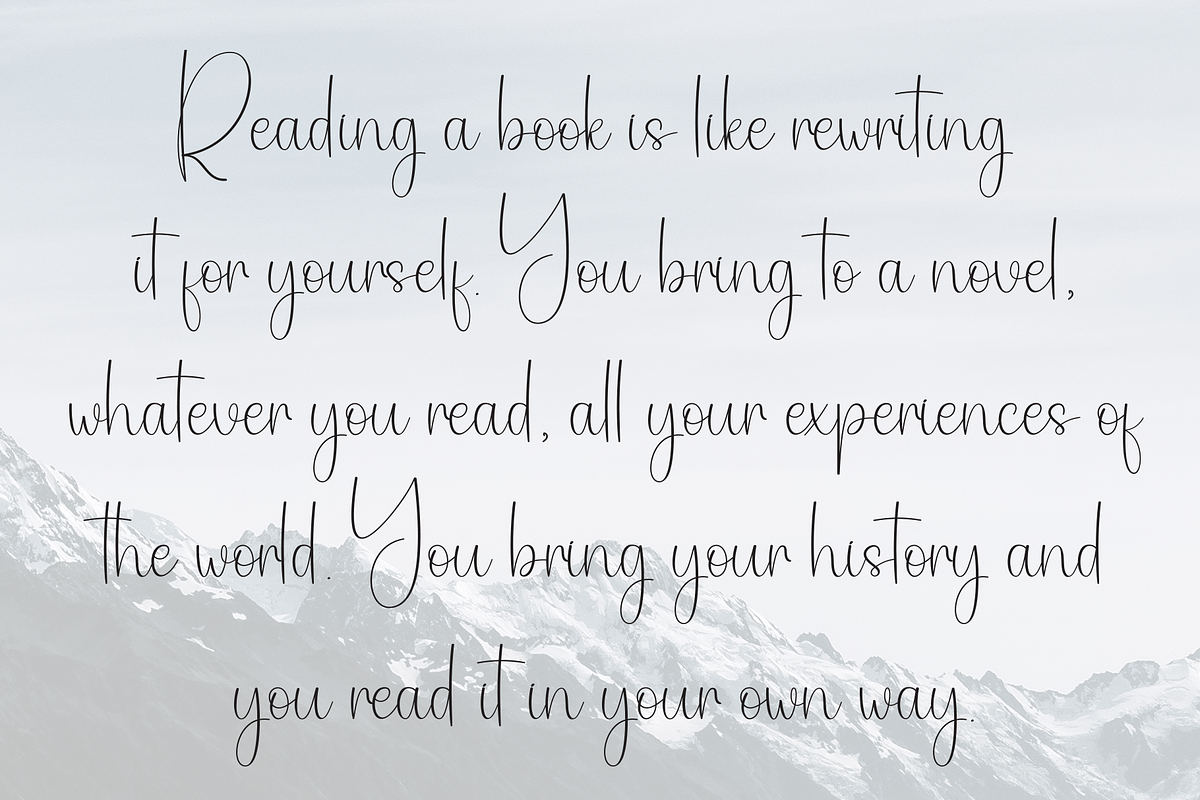 Reading a book is like rewriting
it for yourself. You bring to a novel,
whatever you read, all your experiences of
the world. You bring your history and
you read it in your own way.